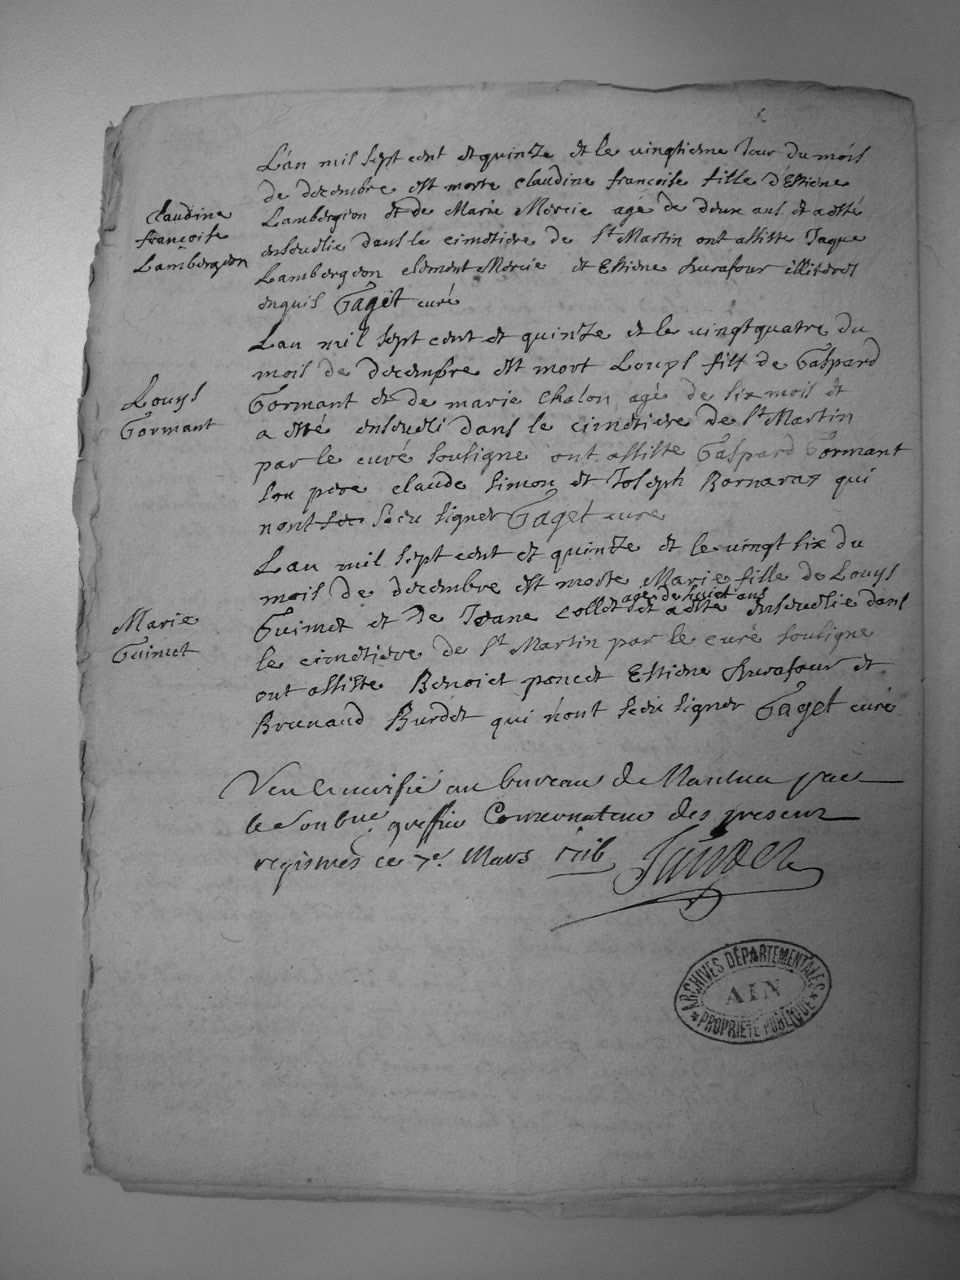 Claudine
françoise
Lambergeon
L'an mil sept cent et quinze et le vingtieme Jour du mois
de decembre est morte claudine françoise fille d'Estiene
Lambergeon et de Marie Mercie agé de deux ans et a esté
ensevelie dans le cimetiere de St Martin ont assiste Jaque
Lambergeon clement Mercie et Estiene durafour illiteres
enquis Gaget curé
Louys
Gormant
Lan mil sept cent et quinze et le vingtquatre du
mois de decembre est mort Louys fils de Gaspard
Gormant et de marie Chalon agé de six mois et
a esté enseveli dans le cimetiere de St Martin
par le curé soussigne ont assiste Gaspard Gormant
son pere claude simon et Joseph Bornaras qui
nont sceu signer Gaget cure
Marie
Guimet
Lan mil sept cent et quinze et le vingt six du
mois de decembre est morte Marie fille de Louys
agé de huict ans
Guimet et de Jeane Collet et a esté ensevelie dans
le cimetiere de St Martin par le curé soussigne
ont assiste Benoict poncet Estiene durafour et
Brunand Burdet qui n'ont sceu signer Gaget curé
Veu et verifié au bureau de Nantua par
le greffier Conservateur des presens
registres ce 7e. Mars 1716
ARCHIVES DÉPARTEMENTALES
AIN
PROPRIÉTÉ PUBLIQUE